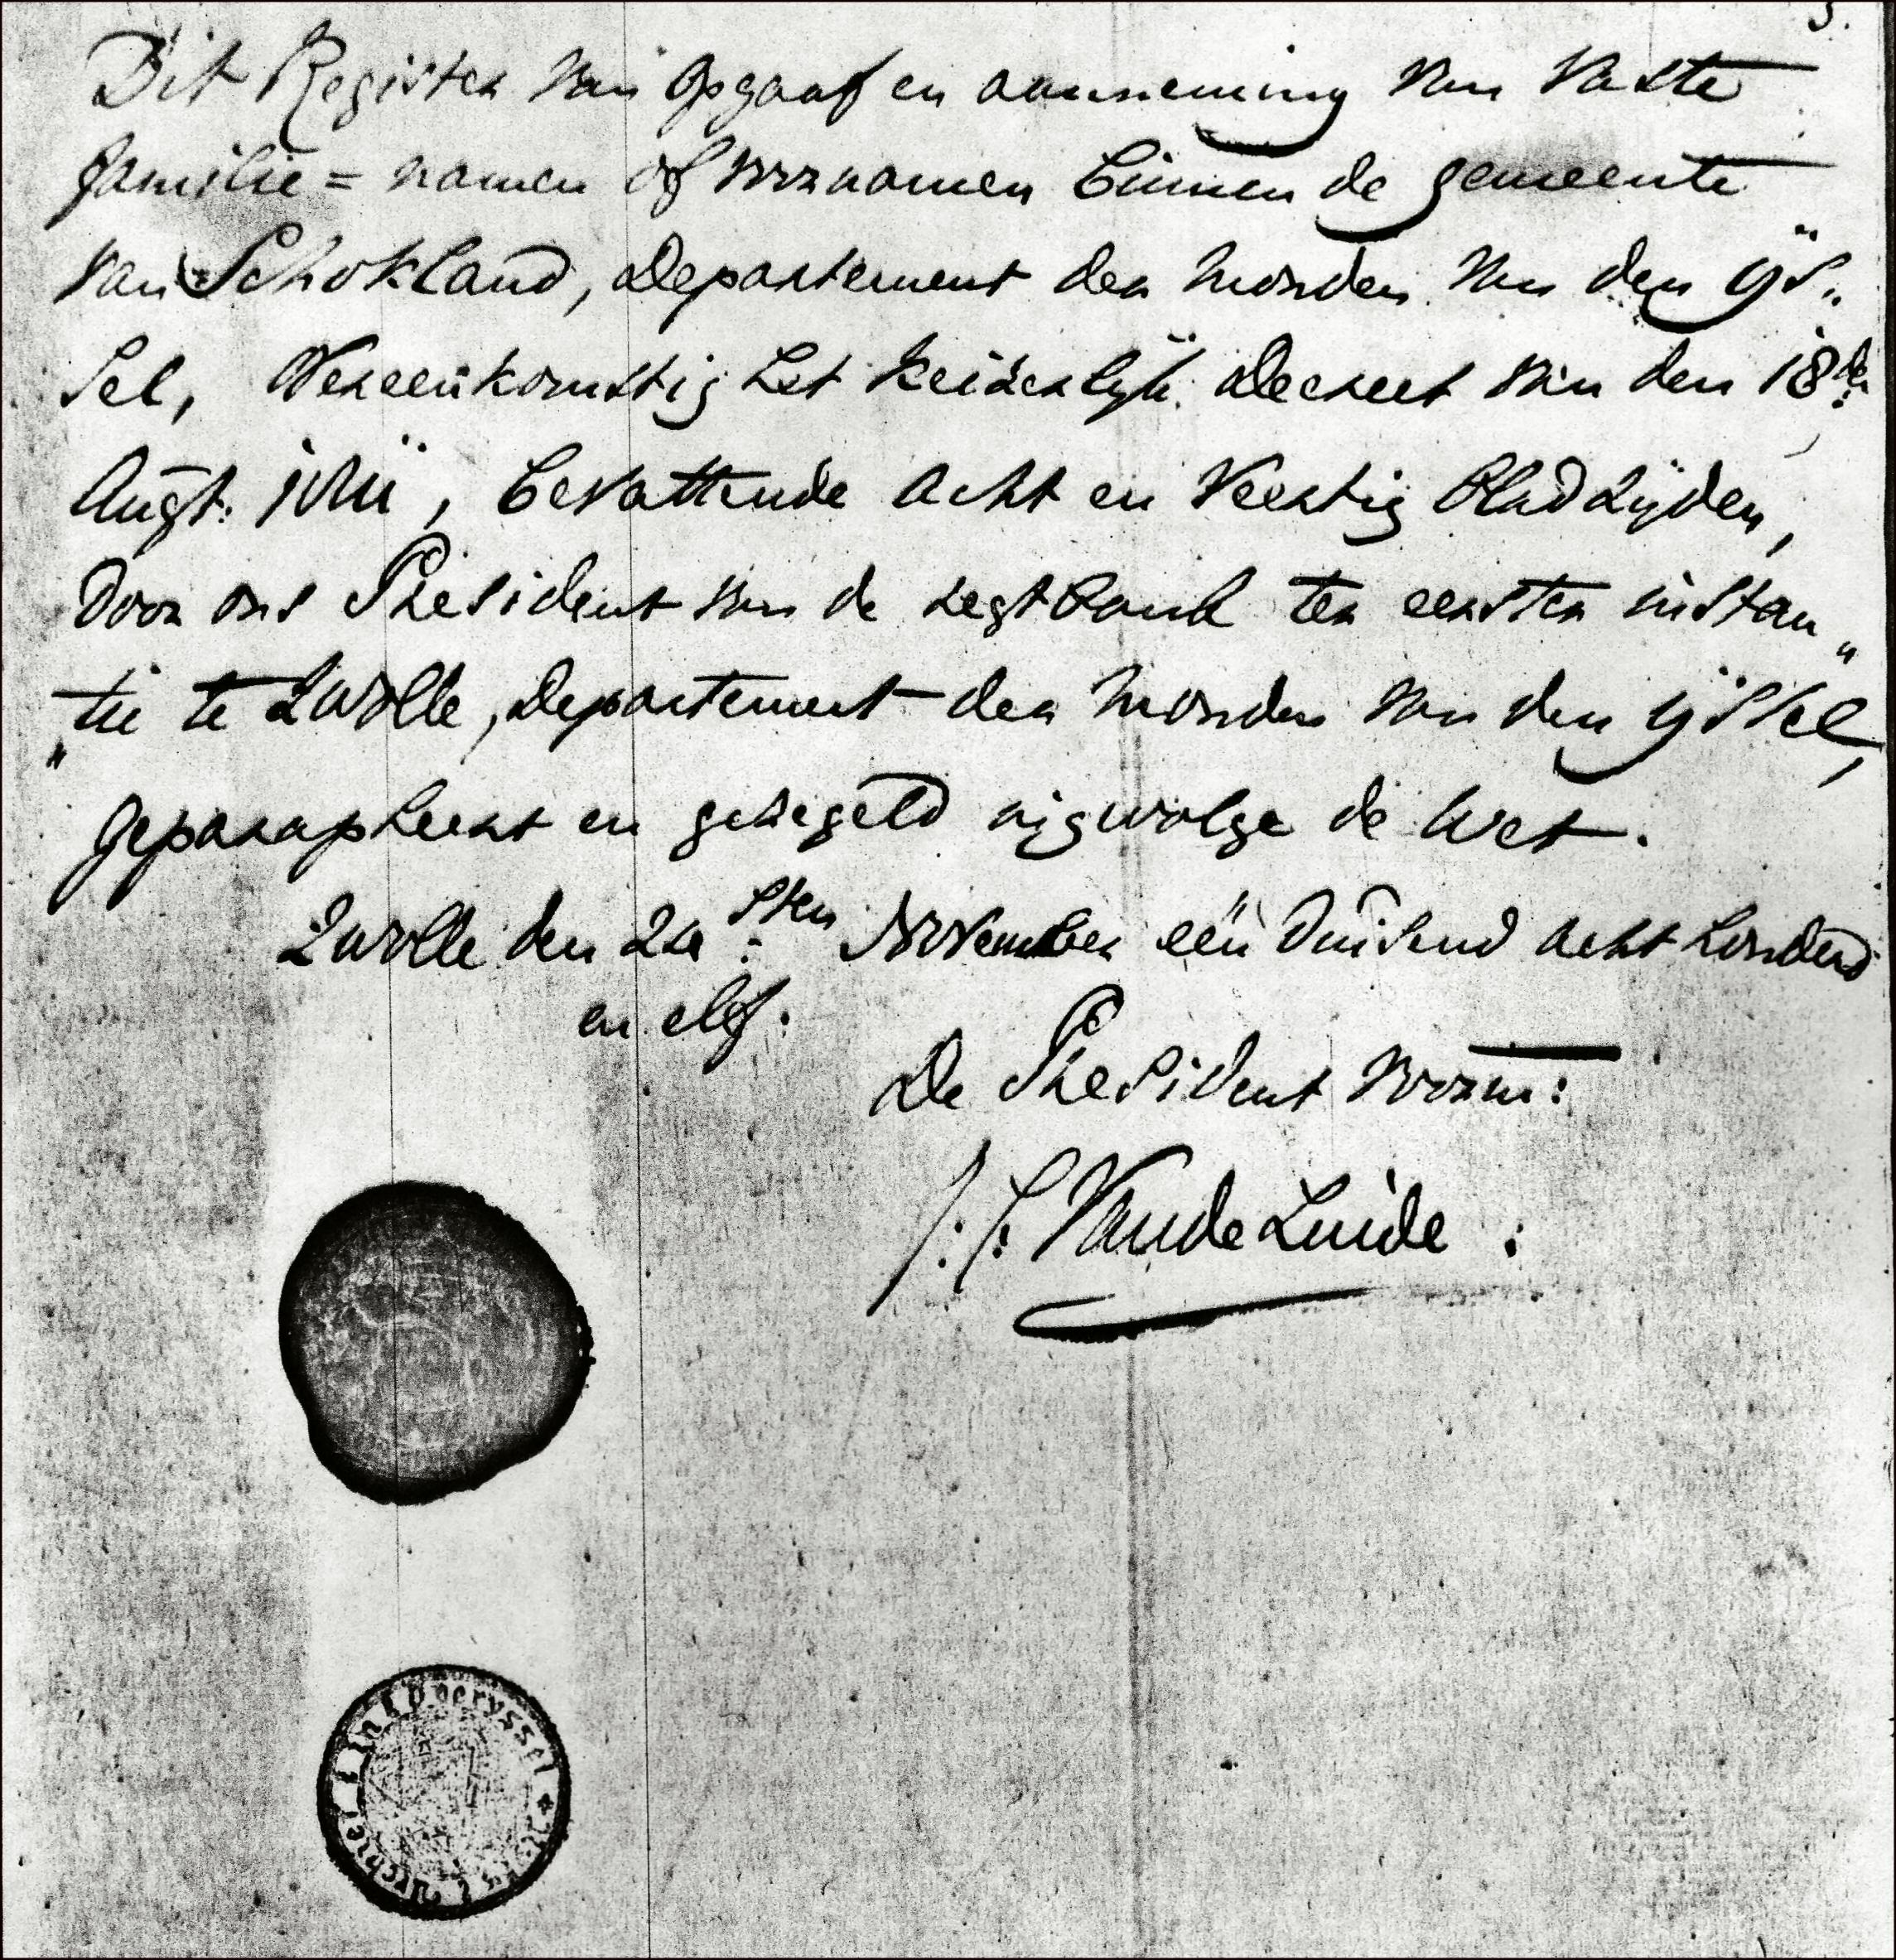 3.
Dit Register van opgaaf en aanneming van vaste
familie = namen of voornamen binnen de gemeente
van Schokland, Departement der monden van den ÿs„
sel, Overeenkomstig het keizerlÿk Decreet van den 18de
Augt: , bevattende acht en veertig bladzÿden,
door ons President van de regtbank ter eerster instan„
„tie te Zwolle, Departement der monden van den ÿssel,
geparapheert en gezegeld ingevolge de wet.
Zwolle den sten November één duizend acht honderd
en elf.
De President voorn:
Van de Linde :
Rÿks Archief in Overyssel